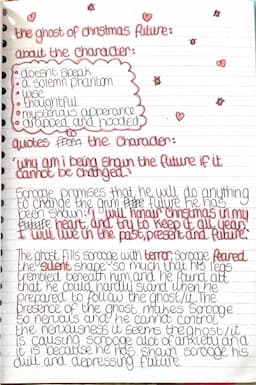 the ghost of christmas future:
about the character:
• doesnt speak
• a solemn phantom
• wise
• thoughtful
• mysterious apperance
• drapped and hooded
quotes from the character:
'why am i being shown the future if it
cannot be changed.'
Scrooge promises that he will do anything
to change the grim future he has
been shown: 'i will honour christmas in my
heart, and try to keep it all year.
I will live in the past, present and future.'
The ghost fills scrooge with terror, Scrooge feared
the 'silent shape' so much that his legs
trembled beneath him and he found att
that he could hardly stand when he
prepared to follow the ghost/it. The
presence of the ghost makes Scrooge
so nervous and he cannot control
the nervousness it seems the ghost/it
is causing scrooge alot of anxiety and
it is because he has shown scrooge his
dull and depressing future.